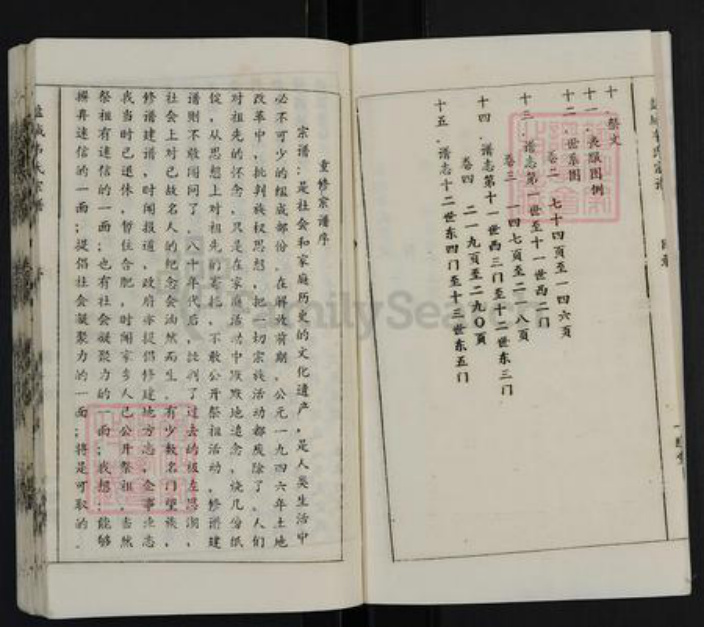 十、祭文
十一、丧服图例
十二、世系图
卷二 七十四页至一四六页
十三、谱志第一世至十一世西二门
卷三 一四七页至二一八页
十四、谱志第十一世西三门至十二世东三门
卷四 二一九页至二九〇页
十五、谱志十二世东四门至十三世东五门
重修宗谱序
宗谱：是社会和家庭历史的文化遗产，是人类生活中
必不可少的组成部份。在解放前期，公元一九四六年土地
改革中，批判族权思想，把一切宗族活动都废除了。人们
对祖先的怀念，只是在家庭活动中默默地追念，烧几份纸
锭，从思想上对祖先的寄托，不敢公开祭祖活动，修谱建
谱则不敢闻问了。八十年代后，批判了过去的极左思潮，
社会上对已故名人的纪念会油然而生。有少数名门望族，
修谱建谱，时闻报道，政府亦提倡修建地方志，企事业志
我当时已退休，暂住合肥，时闻家乡人已公开祭祖，当然
祭祖有迷信的一面；也有社会凝聚力的一面；我想：能够
摒弃迷信的一面；提倡社会凝聚力的一面；将是可取的。
FamilySearch